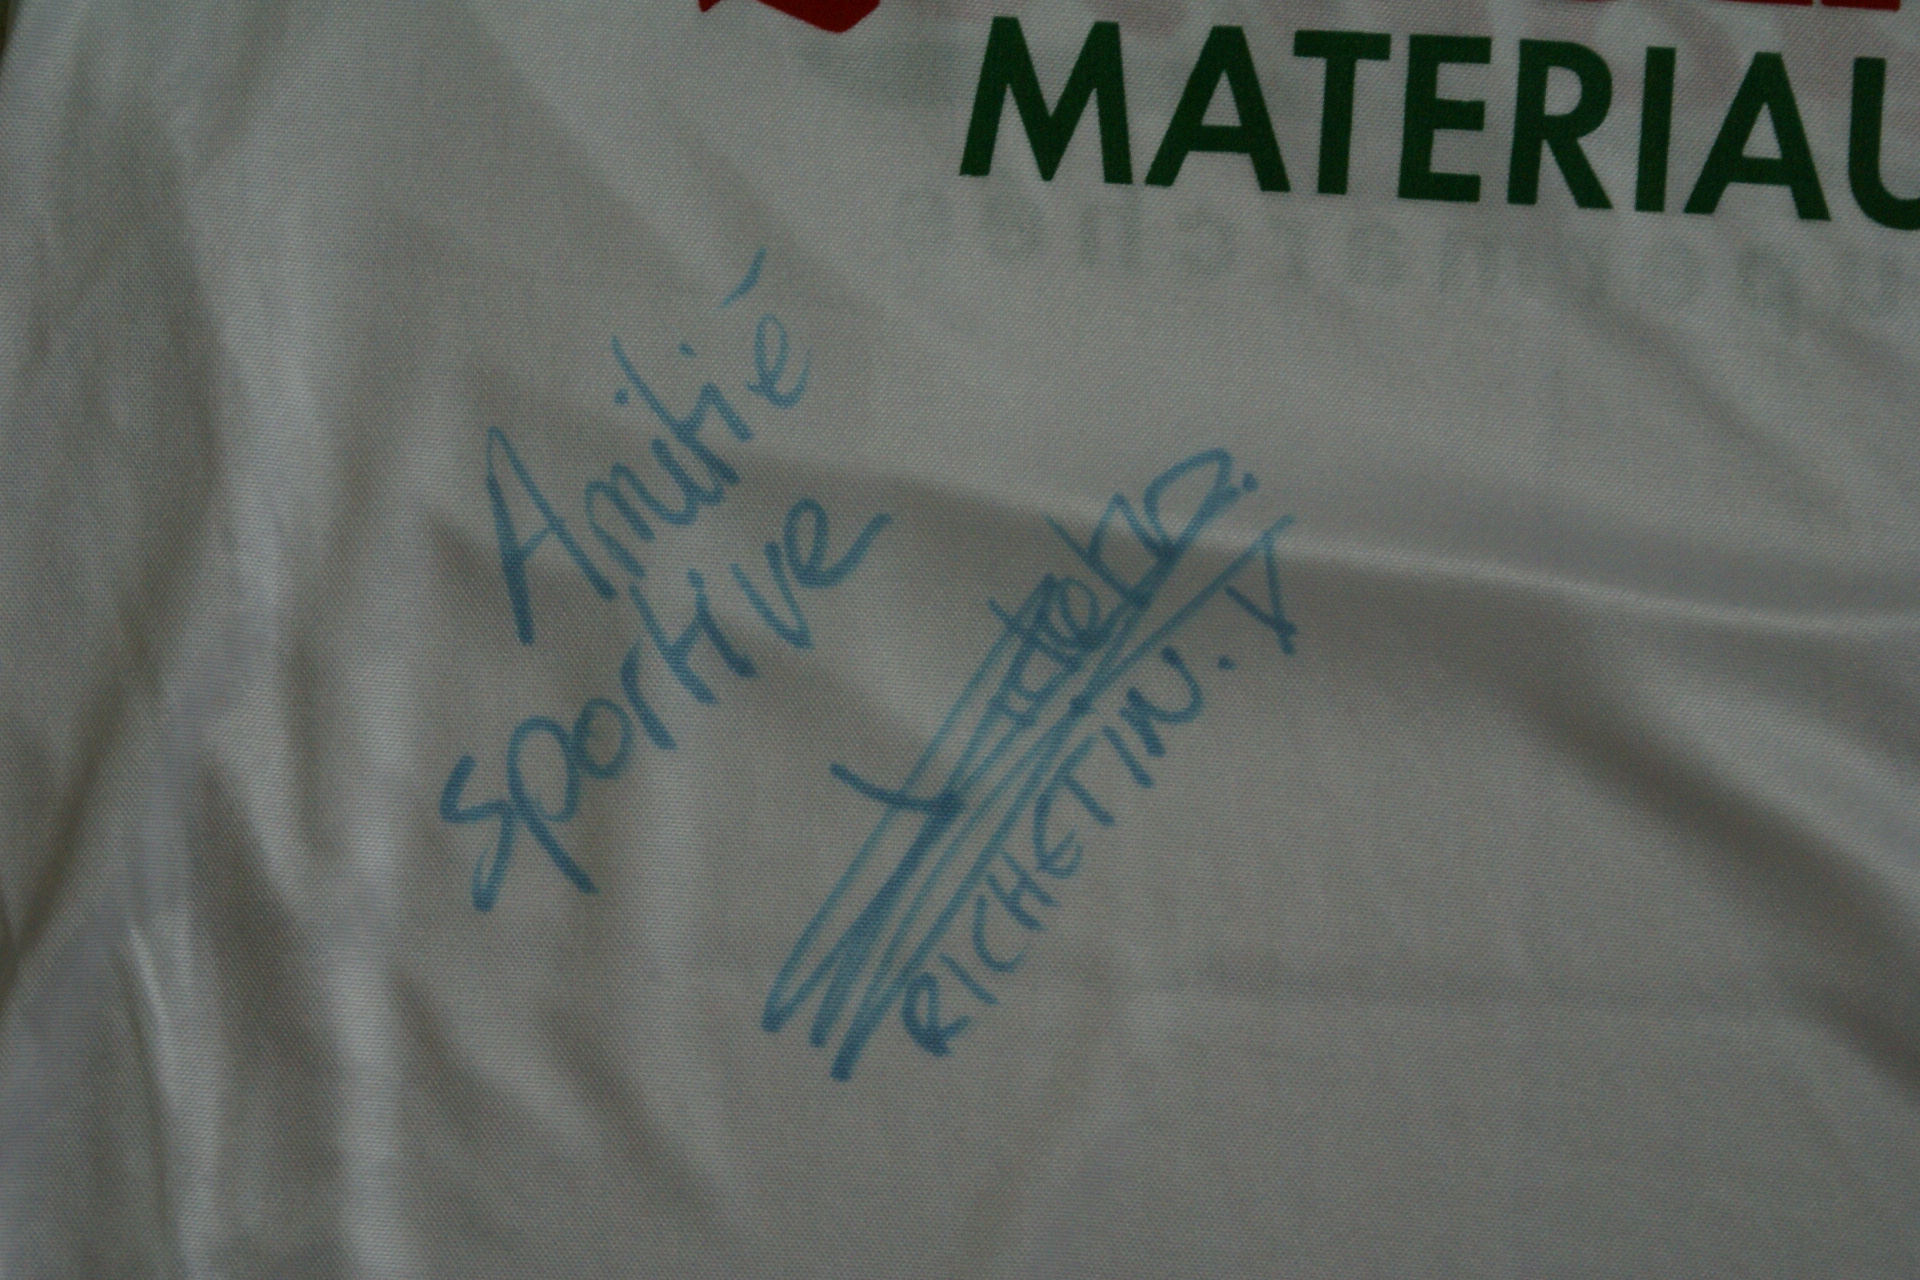 MATERIAU
Amitié
sportive
RICHETIN. V